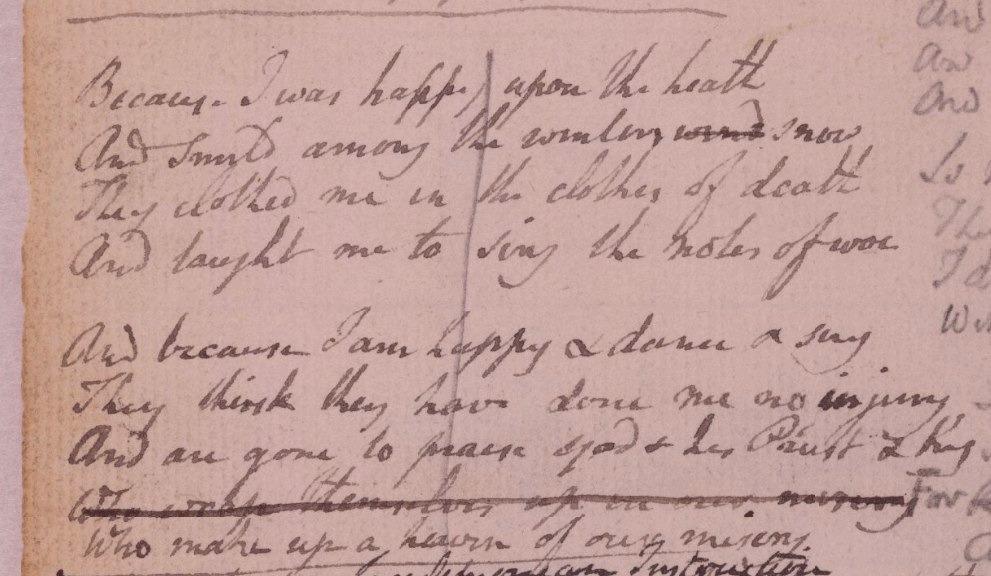 Because I was happy upon the heath
And smild among the winters wind snow
They clothed me in the clothes of death
And taught me to sing the notes of woe
And because I am happy & dance & sing
They think they have done me no injury
And are gone to praise God & his Priest & King
Who wrap themselves up in our misery
Who make up a heaven of our misery
instruction
And
And
And
Is
The
For